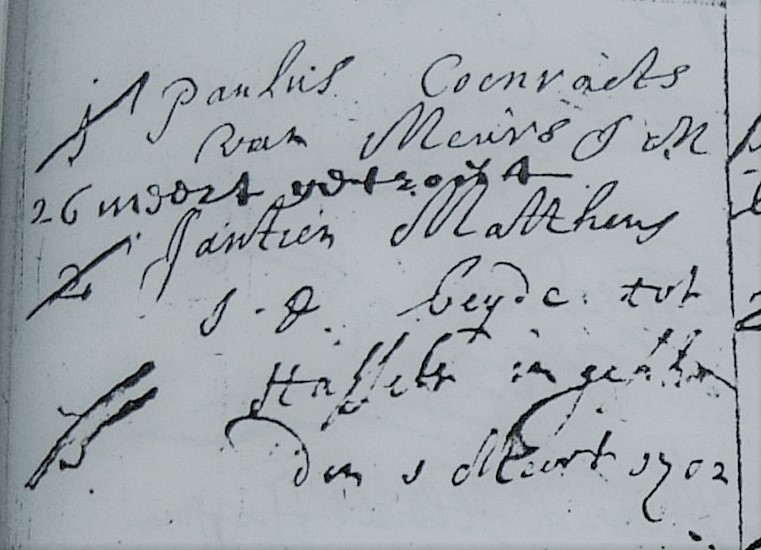 1 Paulus Coenraets
van Meurs J M
26 meert getrout
2 Jantien Mattheus
J. D. beyde tot
Hasselt in geschr
3 den 1 Meert 1702